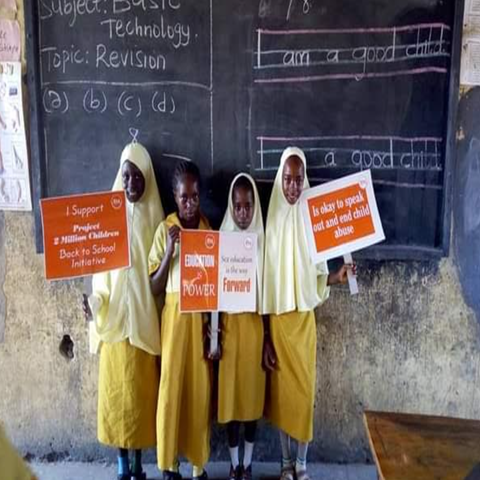 Subject: Basic
Technology.
Topic: Revision
(a) (b) (c) (d)
I am a good child
a good child
I Support
Project
2 Million Children
Back to School
Initiative
EDUCATION
is
POWER
Sex education
is the way
Forward
Is okay to speak
out and end child
abuse